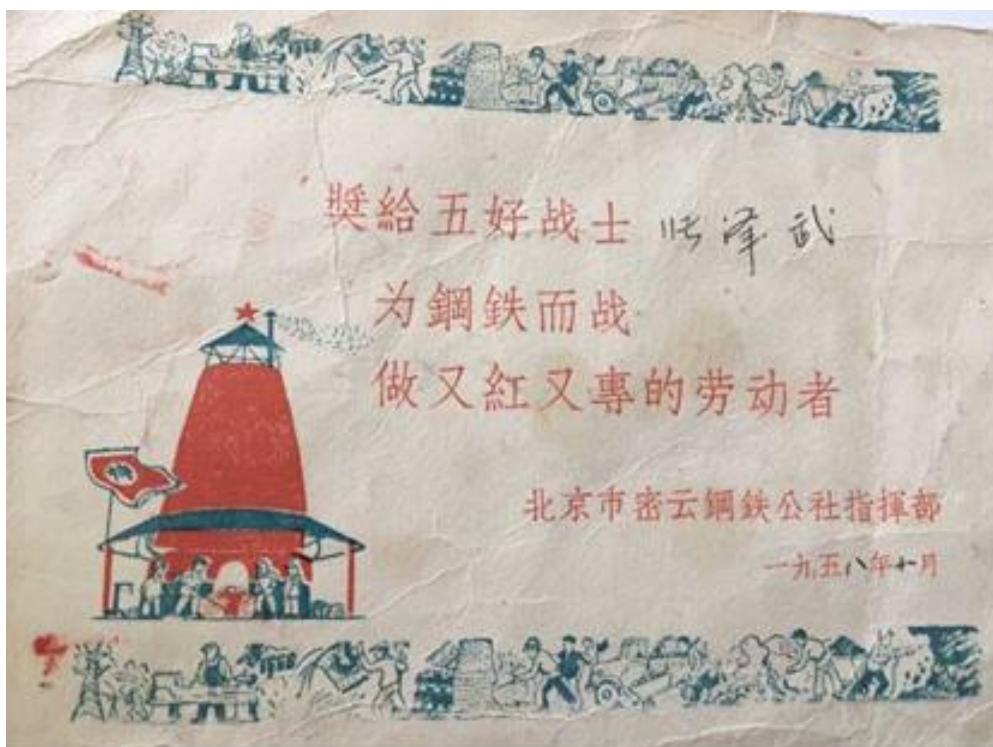 奬給五好战士 张泽武
为鋼鉄而战
做又紅又專的劳动者
北京市密云鋼鉄公社指揮部
一九五八年十月